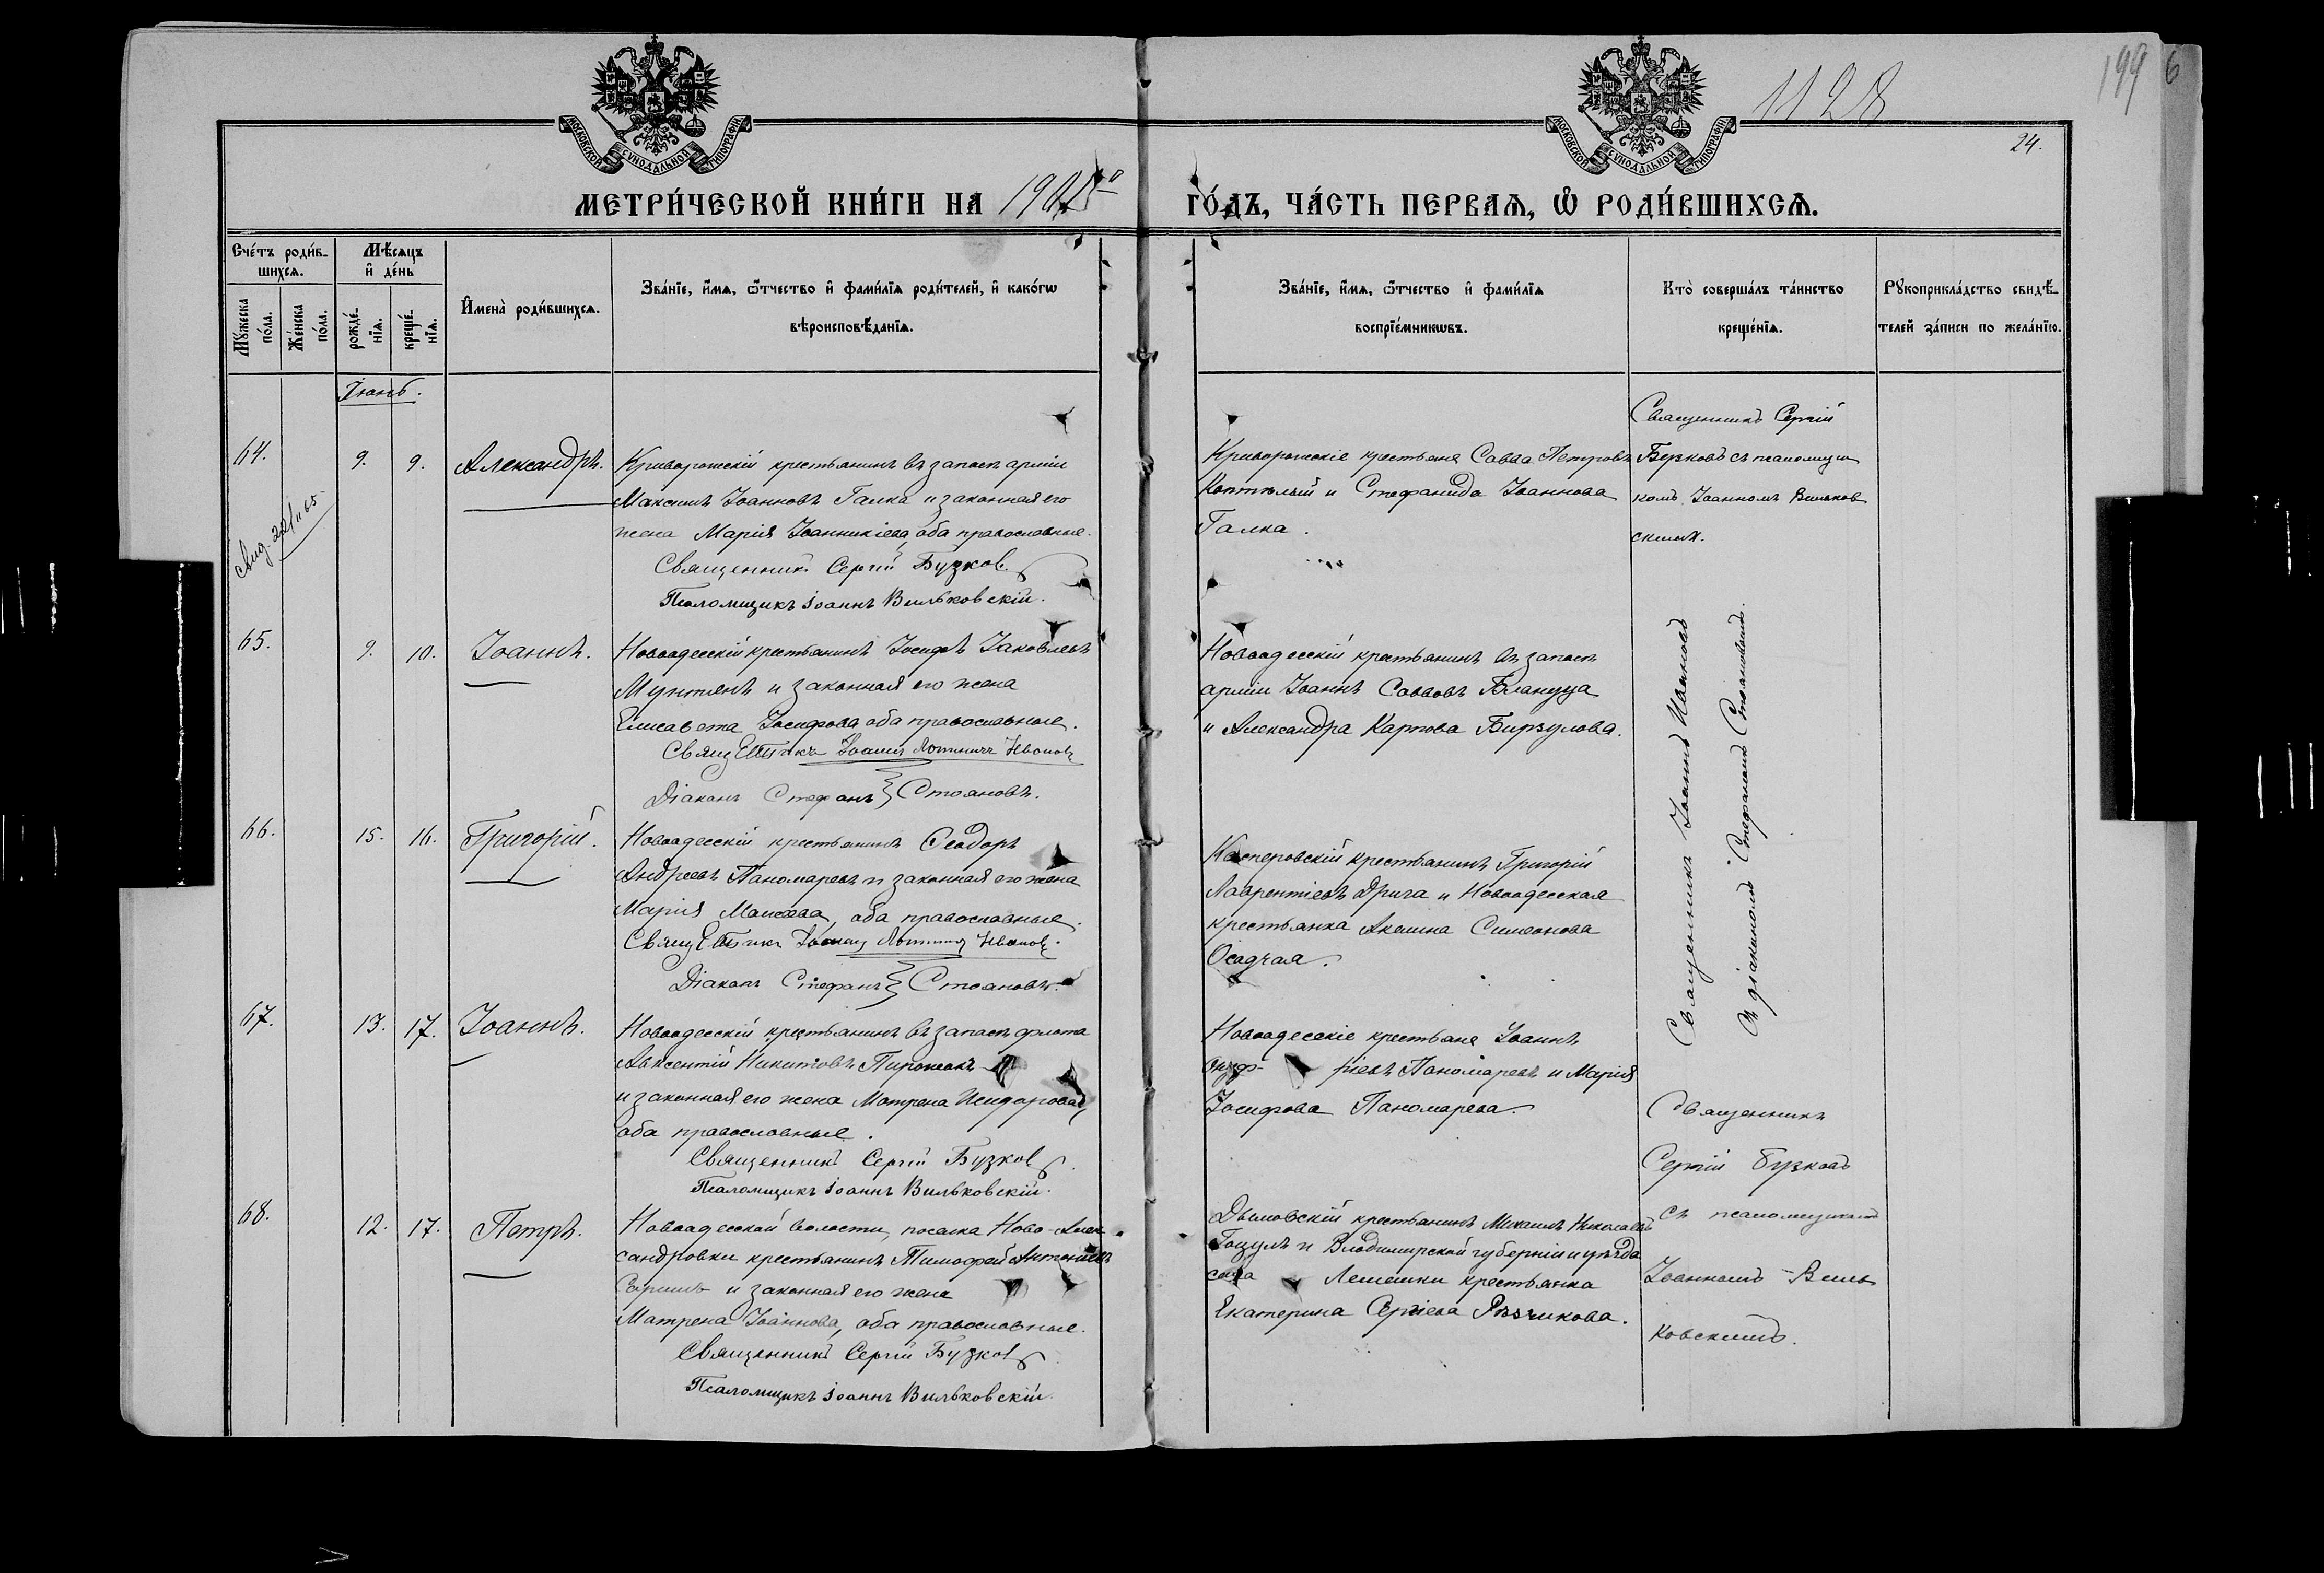 1128
199
6
МОСКОВСКОЙ СѴНОДАЛЬНОЙ ТИПОГРАФІИ
МОСКОВСКОЙ СѴНОДАЛЬНОЙ ТИПОГРАФІИ
24.
МЕТРИ́ЧЕСКОЙ КНИ́ГИ НА
ГО́ДЪ, ЧА́СТЬ ПЕРВАѦ, Ѡ҆ РОДИ́ВШИХСѦ.
Счетъ роди́в-
шихсѧ.
Мꙋ́жеска по́ла.
Же́нска по́ла.
Мѣ́сѧцъ
и҆ де́нь
рожде́-
нїѧ.
креще́-
нїѧ.
И҆мена̀ роди́вшихсѧ.
Зва́нїе, и҆́мѧ, ѻ҆́тчество и҆ фами́лїѧ роди́телей, и҆ како́гѡ
вѣроисповѣ́данїѧ.
Зва́нїе, и҆́мѧ, ѻ҆́тчество и҆ фами́лїѧ
воспрїе́мникѡвъ.
Кто̀ соверша́лъ та́инство
креще́нїѧ.
Рꙋкоприкла́дство свидѣ́-
телей за́писи по жела́нїю.
Іюнь.
64.
9.
9.
Александръ.
Криворожскій крестьянинъ въ запасѣ арміи
Максимъ Іоанновъ Галка и законная его
жена Марія Іоанникіева, оба православные.
Священникъ Сергій Бузков
Псаломщикъ Іоаннъ Вильковскій.
Криворожскіе крестьяне Савва Петровъ
и Стефанида Іоаннова
Галка.
Священникъ Сергій
Бузковъ съ псаломщи
комъ Іоанномъ Вильков
скимъ.
65.
9.
10.
Іоаннъ.
Новоодесскій крестьянинъ Іосифъ Іаковлевъ
Мунтянъ и законная его жена
Елисавета Іосифова оба православные.
Іоаннъ Ивановъ
Діаконъ Стефанъ Стояновъ.
Новоодесскій крестьянинъ въ запасѣ
арміи Іоаннъ Саввовъ Блануца
и Александра Карпова Бирзулова.
Священникъ Іоаннъ Ивановъ
съ діакономъ Стефаномъ Стояновымъ.
66.
15.
16.
Григорій.
Новоодесскій крестьянинъ Ѳеодоръ
Андреевъ Паномаревъ и законная его жена
Марія Моисеева, оба православные.
Ивановъ.
Діаконъ Стефанъ Стояновъ.
Касперовскій крестьянинъ Григорій
Лаврентіевъ Дрига и Новоодесская
крестьянка Акилина Симеонова
Осадчая.
67.
13.
17.
Іоаннъ.
Новоодесскій крестьянинъ въ запасѣ флота
Авксентій Никитовъ Пирожокъ
и законная его жена Матрена Исидорова,
оба православные.
Священникъ Сергій Бузков
Псаломщикъ Іоаннъ Вильковскій.
Новоодесскіе крестьяне Іоаннъ
Онуф- ріевъ Паномаревъ и Марія
Іосифова Паномарева.
Священникъ
Сергій Бузковъ
съ псаломщикомъ
Іоанномъ Виль
ковскимъ.
68.
12.
17.
Петръ.
Новоодесской волости, поселка Ново-Алек-
сандровки крестьянинъ Тимофей Антоніевъ
и законная его жена
Матрена Іоаннова, оба православные.
Священникъ Сергій Бузков
Псаломщикъ Іоаннъ Вильковскій.
Дымовскій крестьянинъ Михаилъ Николаевъ
Гоцулъ и Владимирской губерніи и уѣзда
села Лемешки крестьянка
Екатерина Сергіева Рѣзчикова.